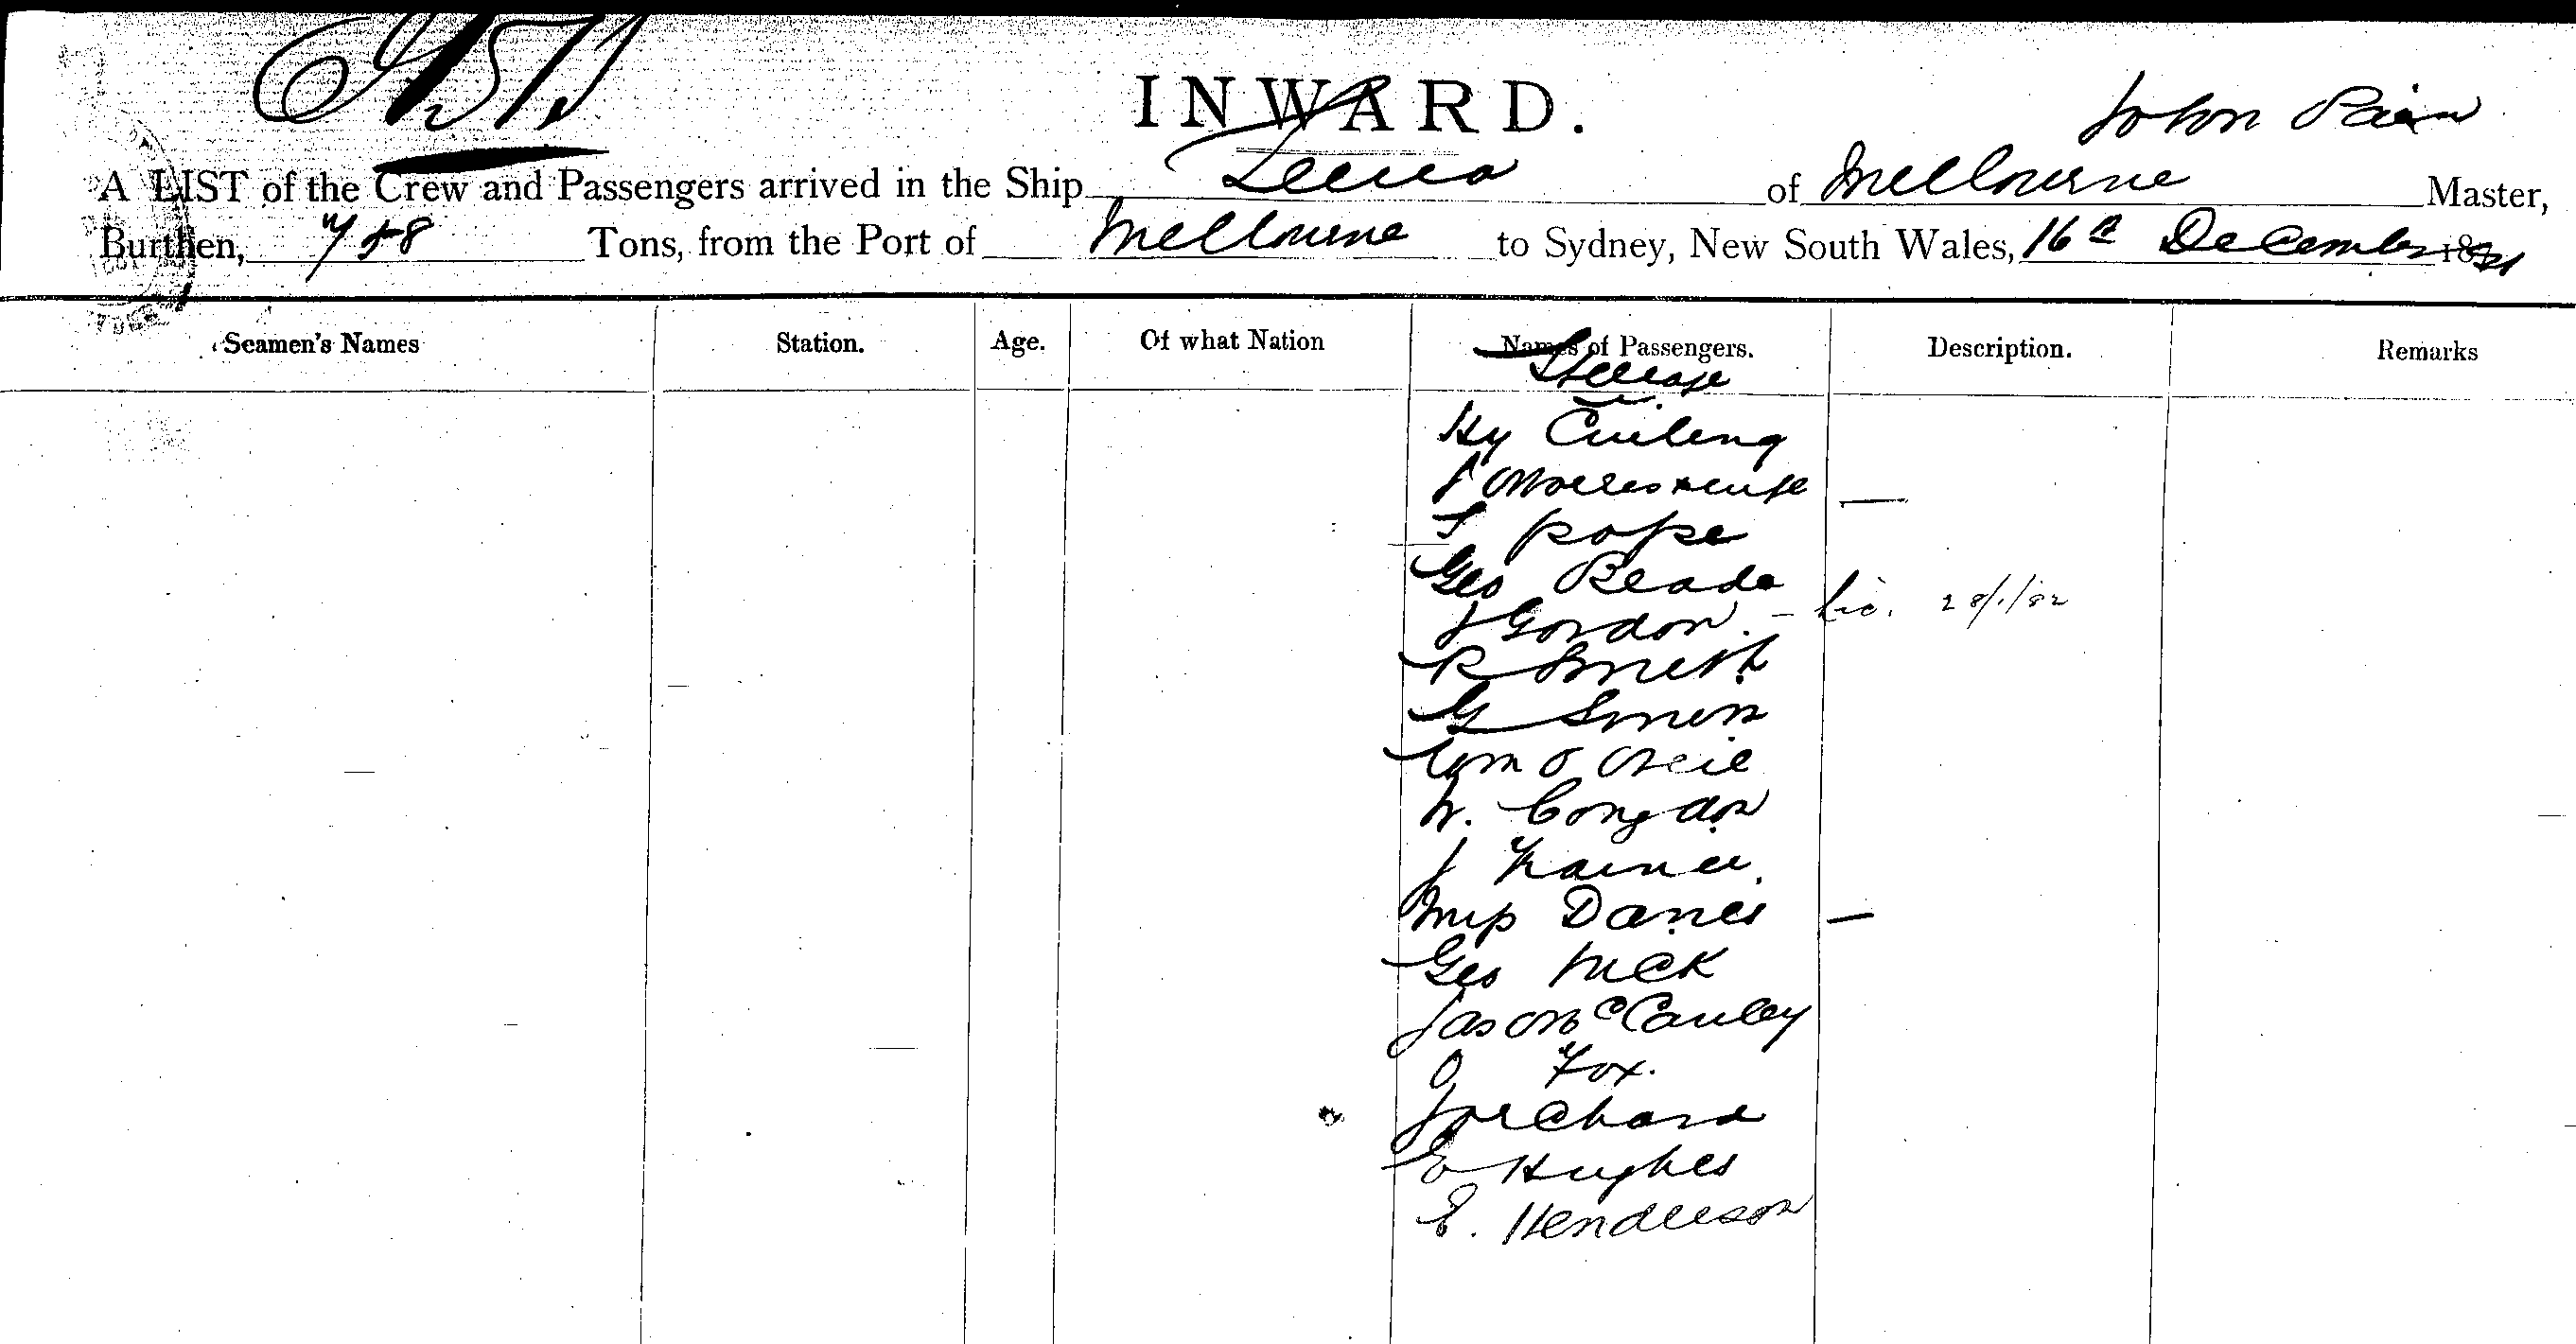 INWARD.
John
A LIST of the Crew and Passengers arrived in the Ship of Melbourne Master,
Burthen, 758 Tons, from the Port of Melbourne to Sydney, New South Wales, 16th December 1881
Seamen's Names Station. Age. Of what Nation Names of Passengers. Description. Remarks
Steerage
Hy
S Pope
Geo Reade
J Gordon. - Lic. 28/1/82
R Smith
G
Wm O Neil
W. Congdon
J
Danes —
Geo
Jas McCauley
O Fox.
J Orchard
E Hughes
E. Henderson